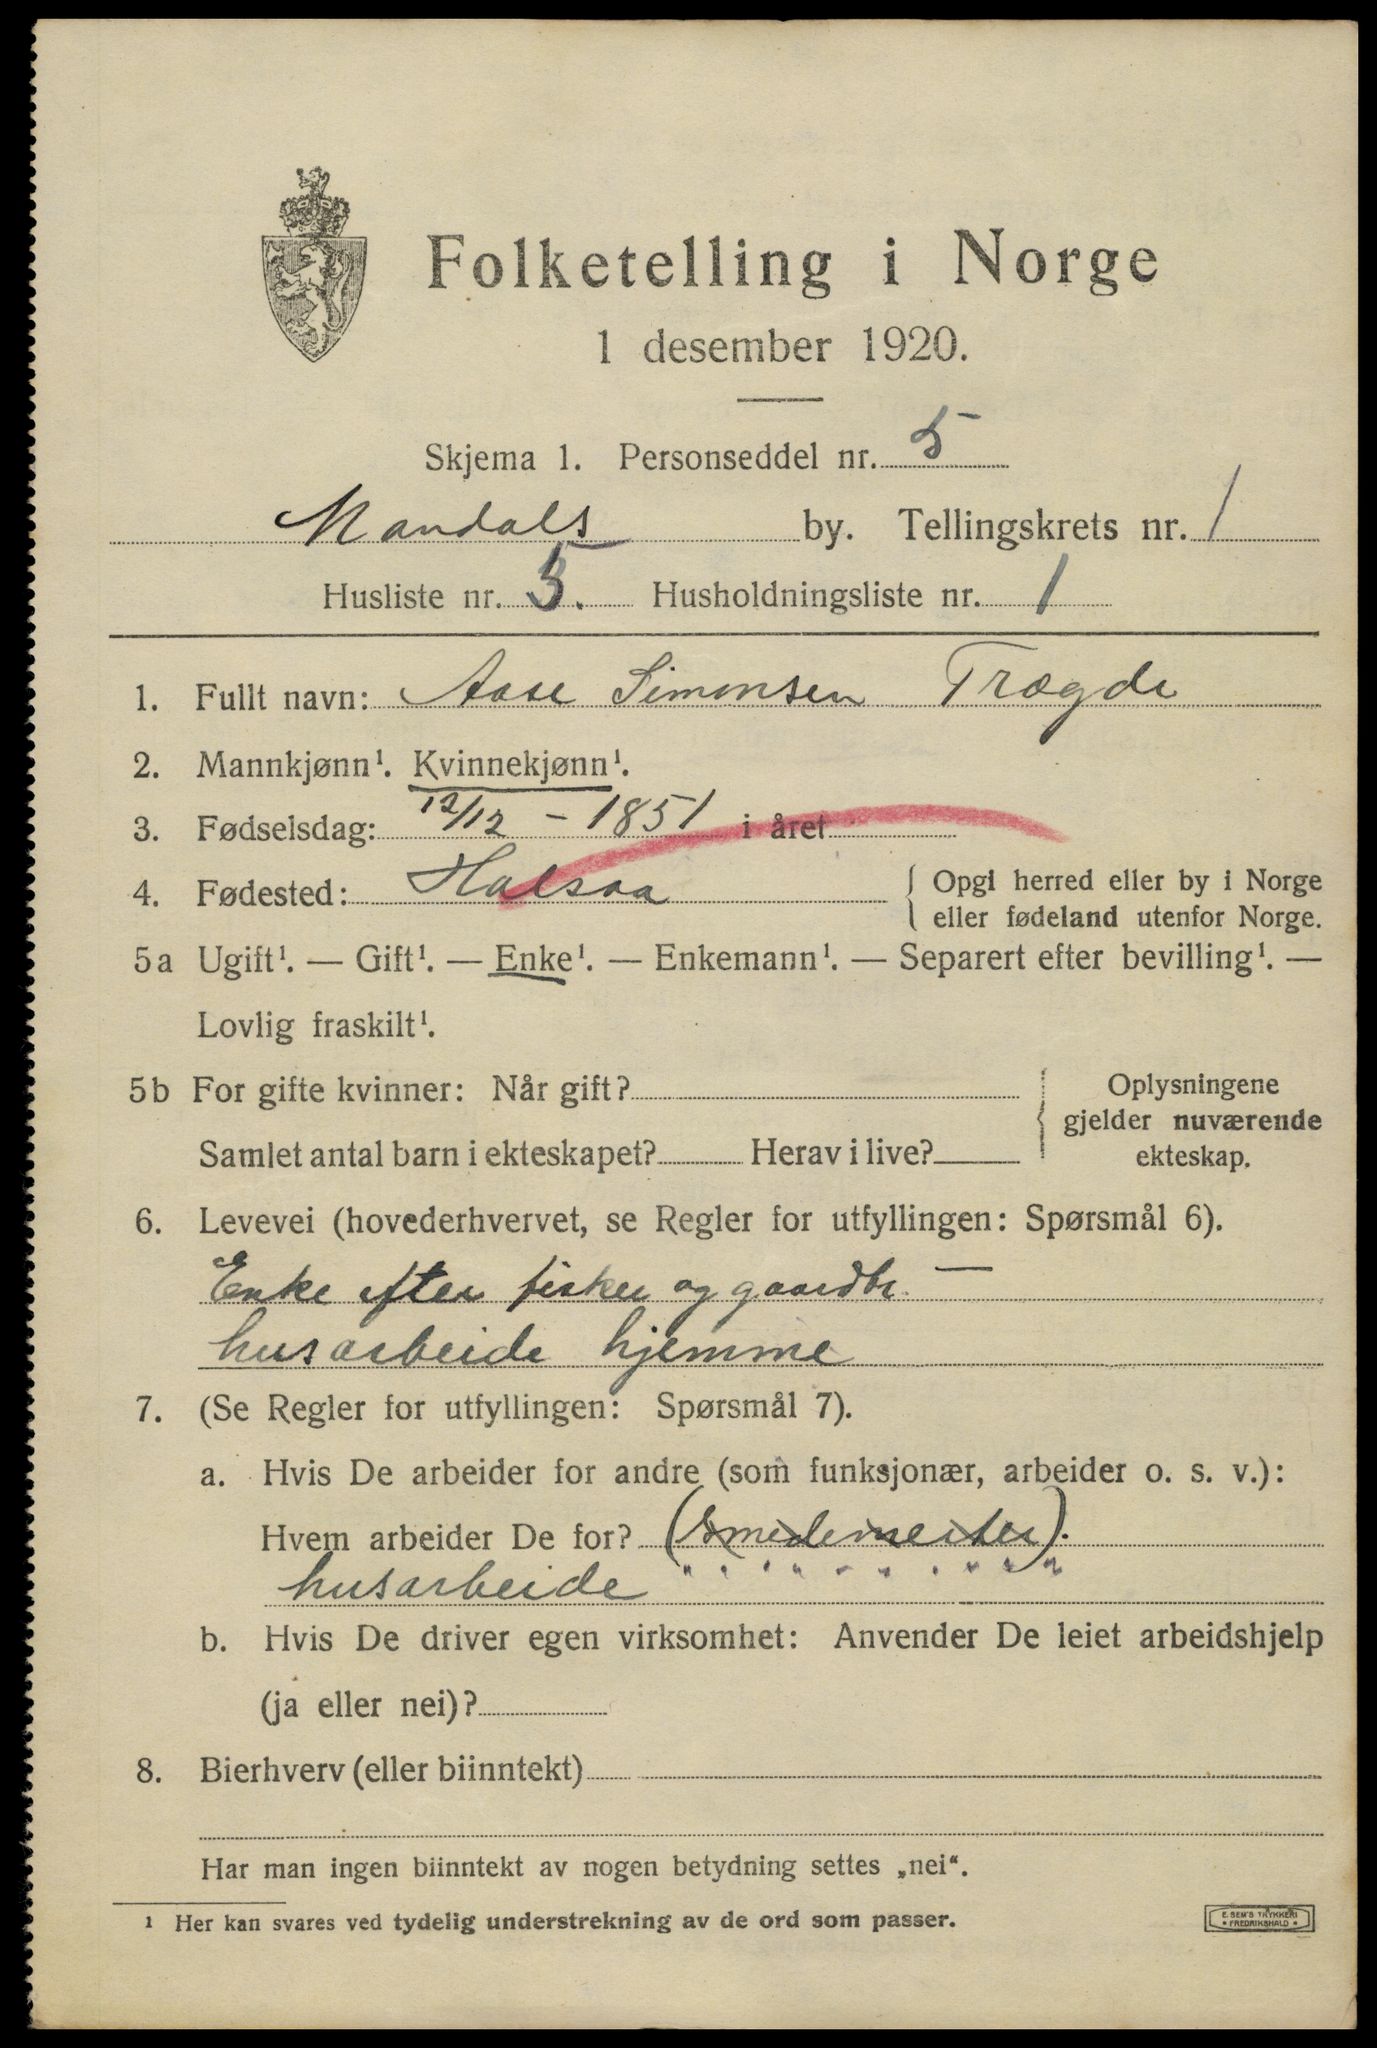 Folketelling i Norge
1 desember 1920.
Skjema 1. Personseddel nr. 5
Mandals by. Tellingskrets nr. 1
Husliste nr. 5. Husholdningsliste nr. 1
1. Fullt navn: Aase Simonsen Trægde
2. Mannkjønn¹. Kvinnekjønn¹.
3. Fødselsdag: 12/12 - 1851 i året
4. Fødested: Halsaa { Opgi herred eller by i Norge
eller fødeland utenfor Norge.
5a Ugift¹. — Gift¹. — Enke¹. — Enkemann¹. — Separert efter bevilling¹. —
Lovlig fraskilt¹.
5b For gifte kvinner: Når gift? { Oplysningene
gjelder nuværende
Samlet antal barn i ekteskapet? Herav i live? ekteskap.
6. Levevei (hovederhvervet, se Regler for utfyllingen: Spørsmål 6).
Enke efter fisker og gaardbr. —
husarbeide hjemme
7. (Se Regler for utfyllingen: Spørsmål 7).
a. Hvis De arbeider for andre (som funksjonær, arbeider o. s. v.):
Hvem arbeider De for? (Smedemester).
husarbeide
b. Hvis De driver egen virksomhet: Anvender De leiet arbeidshjelp
(ja eller nei)?
8. Bierhverv (eller biinntekt)
Har man ingen biinntekt av nogen betydning settes „nei“.
¹ Her kan svares ved tydelig understrekning av de ord som passer.
E. SEM'S TRYKKERI
• FREDRIKSHALD •